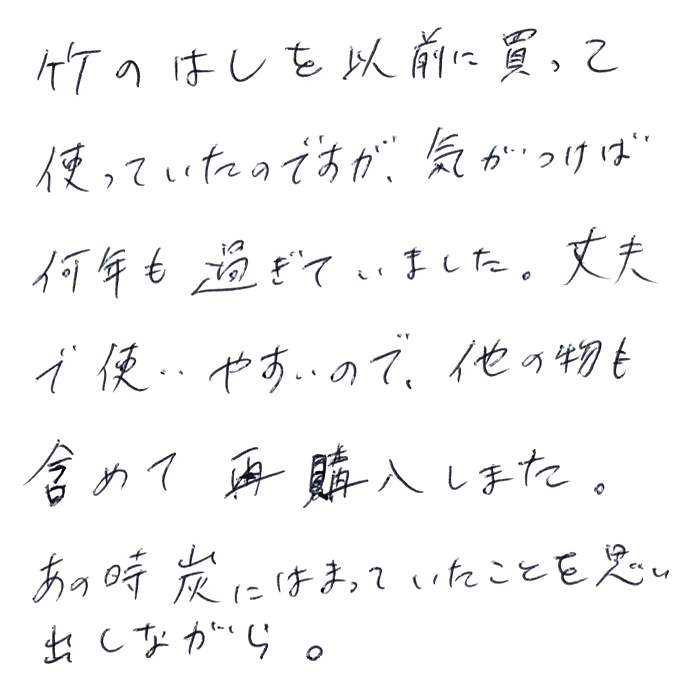 竹のはしを以前に買って
使っていたのですが、気がつけば
何年も過ぎていました。丈夫
で使いやすいので、他の物も
含めて再購入しました。
あの時炭にはまっていたことを思い
出しながら。